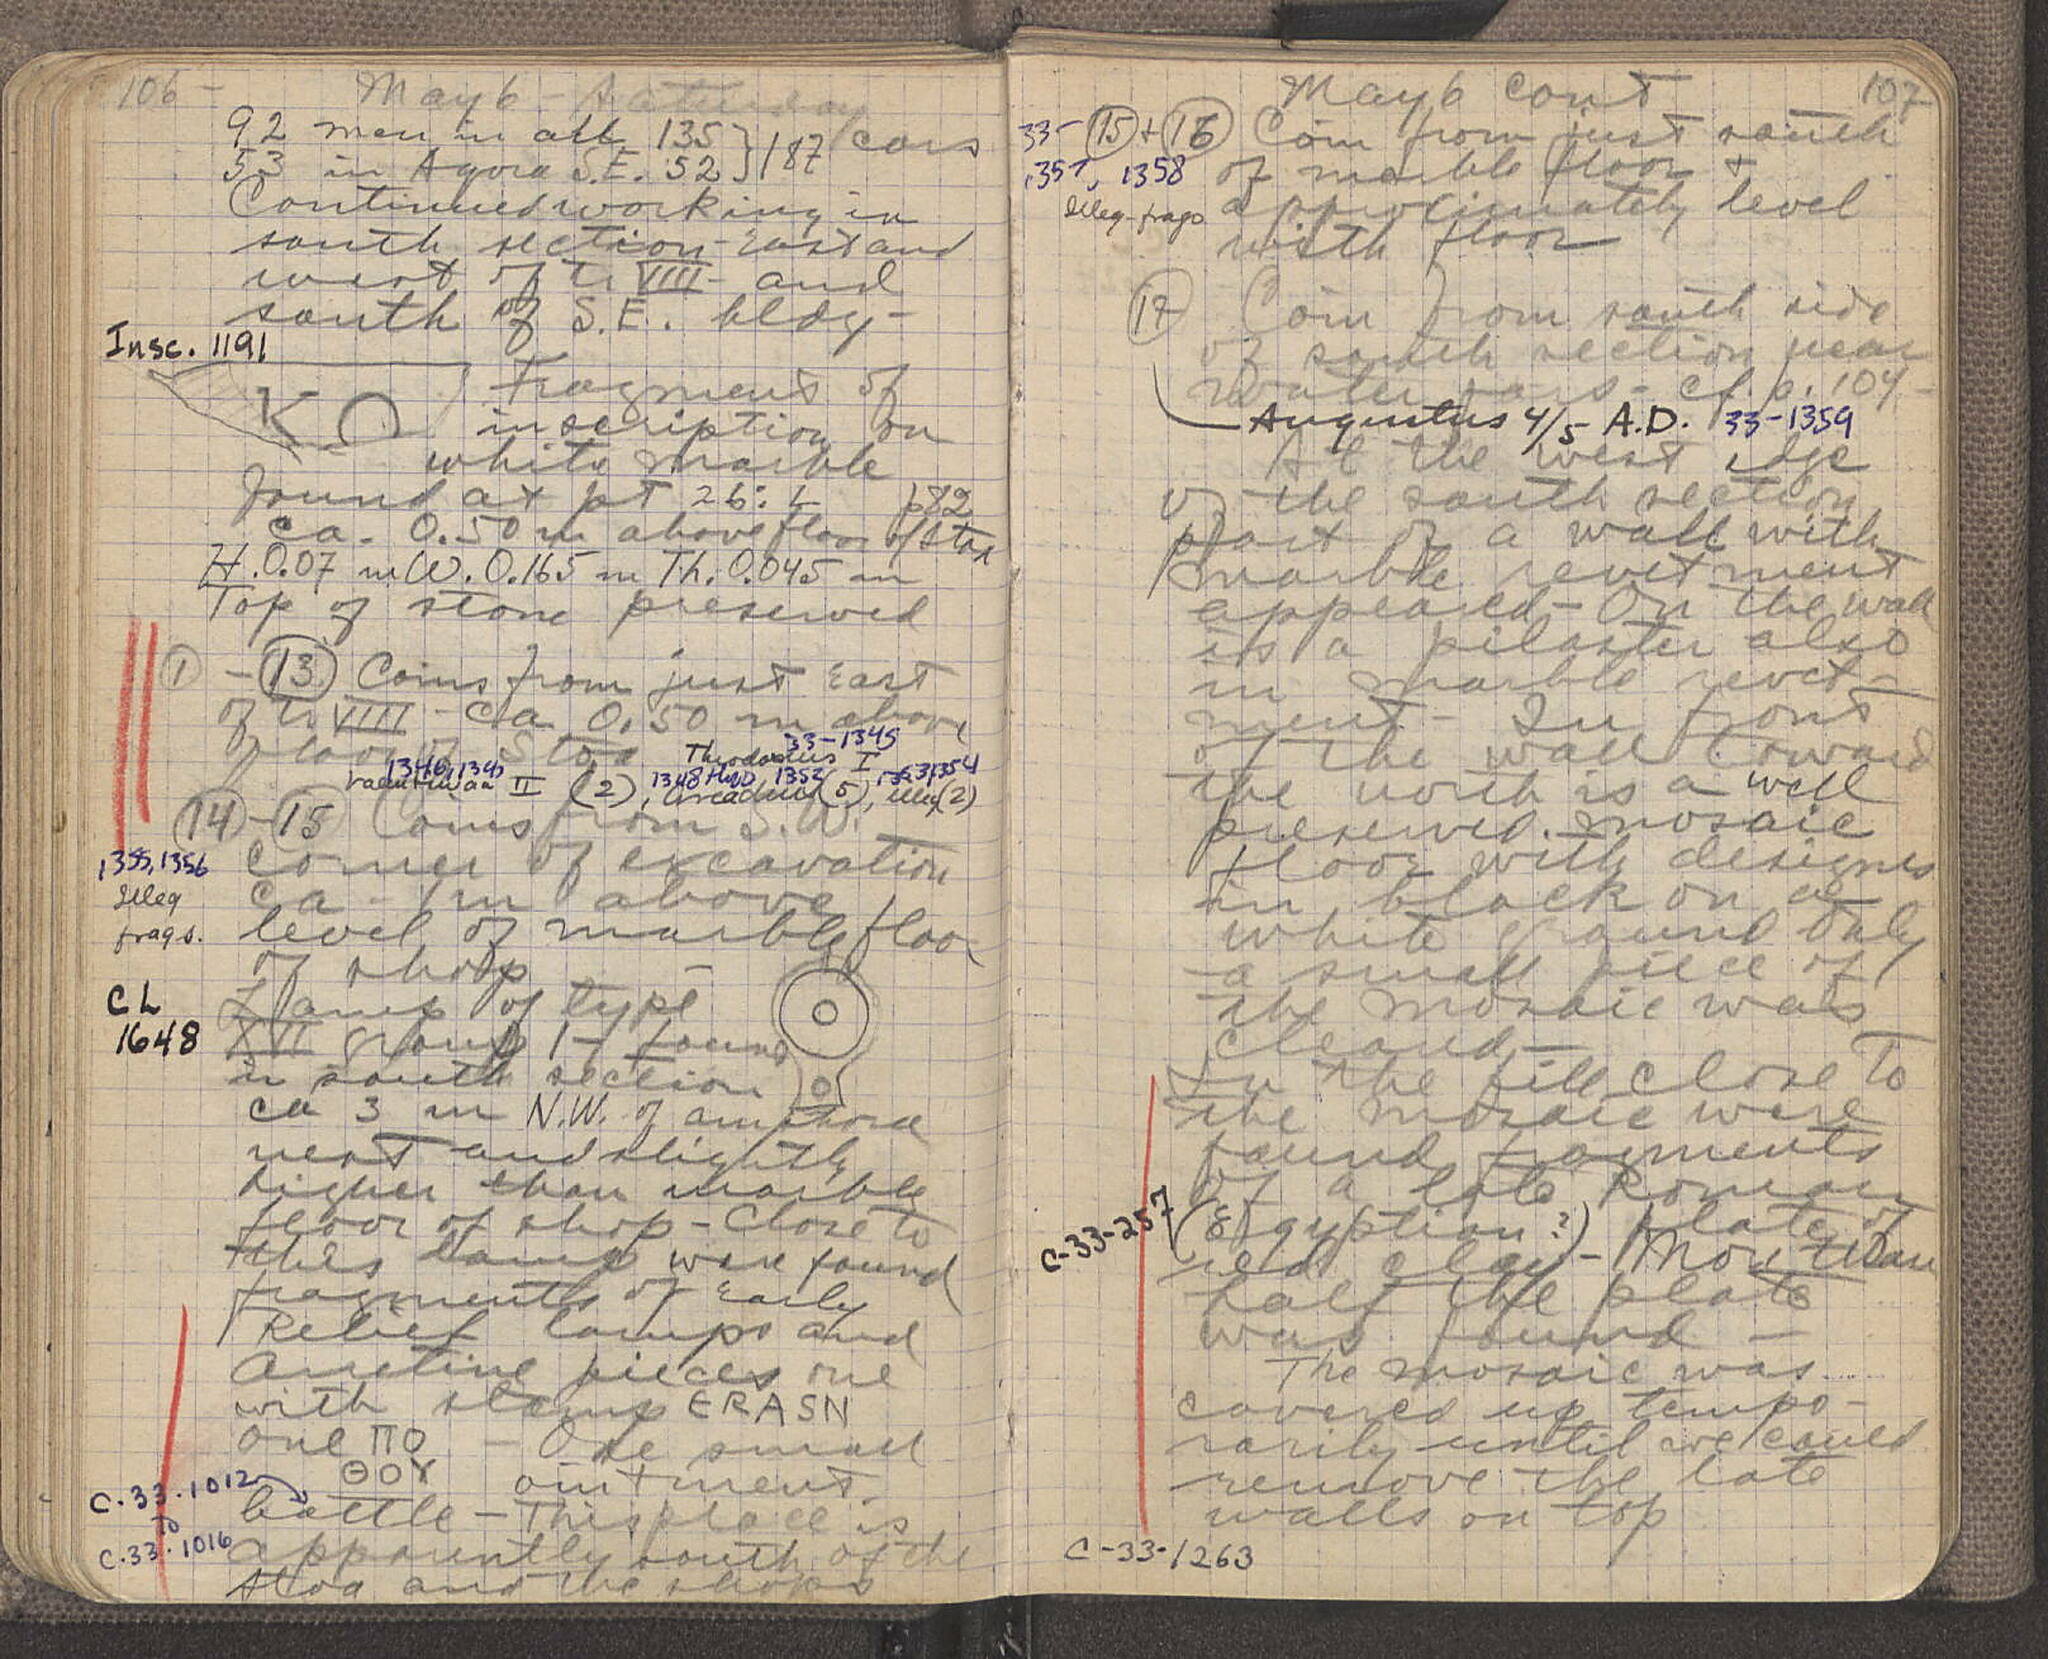 106 - May 6 - Saturday
92 men in all 135 } 187 cars
53 in Agora S.E. 52
Continued working in
south section - East and
west of tr VIIII - and
south of S.E. bldg -
Insc. 1191
ΚΟ Fragment of
inscription on
white marble
found at pt 26:L p82
ca. 0.50 m above floor of Stoa
H. 0.07 m W. 0.165 m Th. 0.045 m
Top of stone preserved
1 - 13 Coins from just East
of tr VIIII - ca 0.50 m above
floor of Stoa 33-1345
Theodosius I
1346, 1347 1348 1352 1353, 1354
Valentinian II (2), Arcadius (5), illeg (2)
14 - 15 Coins from S.W.
1355, 1356 corner of excavation
Illeg ca - 1m above
frags. level of marble floor
of shop -
CL Lamp of type
1648 XVI group 1 - found
in south section
ca 3 m N.W. of amphora
nest and slightly
higher than marble
floor of shop - Close to
this lamp were found
fragments of Early
Relief lamps and
Arretine pieces one
with stamp ERASN
one ΠΟ - One small
ΘΟΥ ointment
C-33-1012 bottle - This place is
to
C-33-1016 apparently south of the
stoa and the shops
May 6 cont 107
33- 15 + 16 Coin from just south
1357, 1358 of marble floor +
Illeg-frags approximately level
with floor
17 Coin from south side
of south section near
Water jars - cf. p. 104 -
Augustus 4/5 A.D. 33-1359
At the west edge
of the south section
part of a wall with
marble revetment
appeared - On the wall
is a pilaster also
in marble revet-
ment - In front
of the wall toward
the north is a well
preserved mosaic
floor with designs
in black on a
white ground Only
a small piece of
the mosaic was
cleaned -
In the fill close to
the mosaic were
found fragments
of a late Roman
C-33-257 (Egyptian?) plate of
red clay - More than
half the plate
was found -
The mosaic was
covered up tempo-
rarily until we could
remove the late
walls on top
C-33-1263